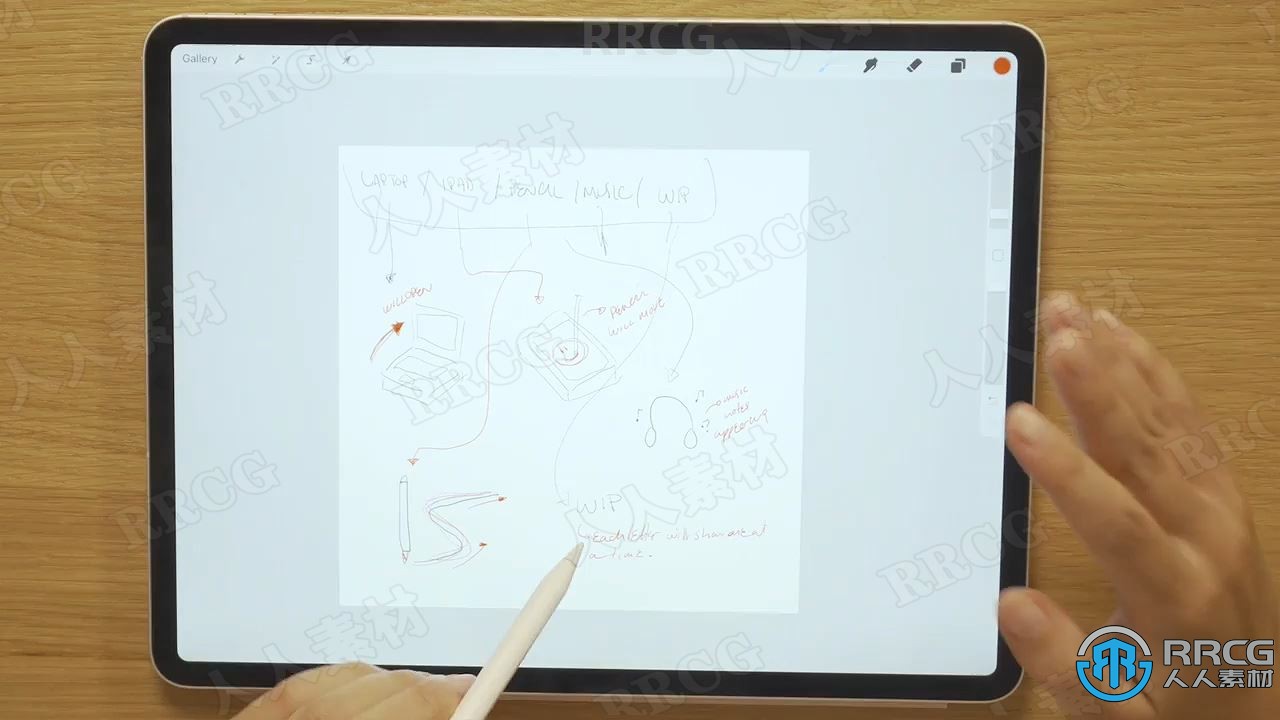 RRCG
Gallery
LAPTOP / IPAD / PENCIL / MUSIC / WIP
WILL OPEN
PENCIL
WILL MOVE
music
notes
appearing
WIP
each letter will show one at
a time.
RRCG
人人素材